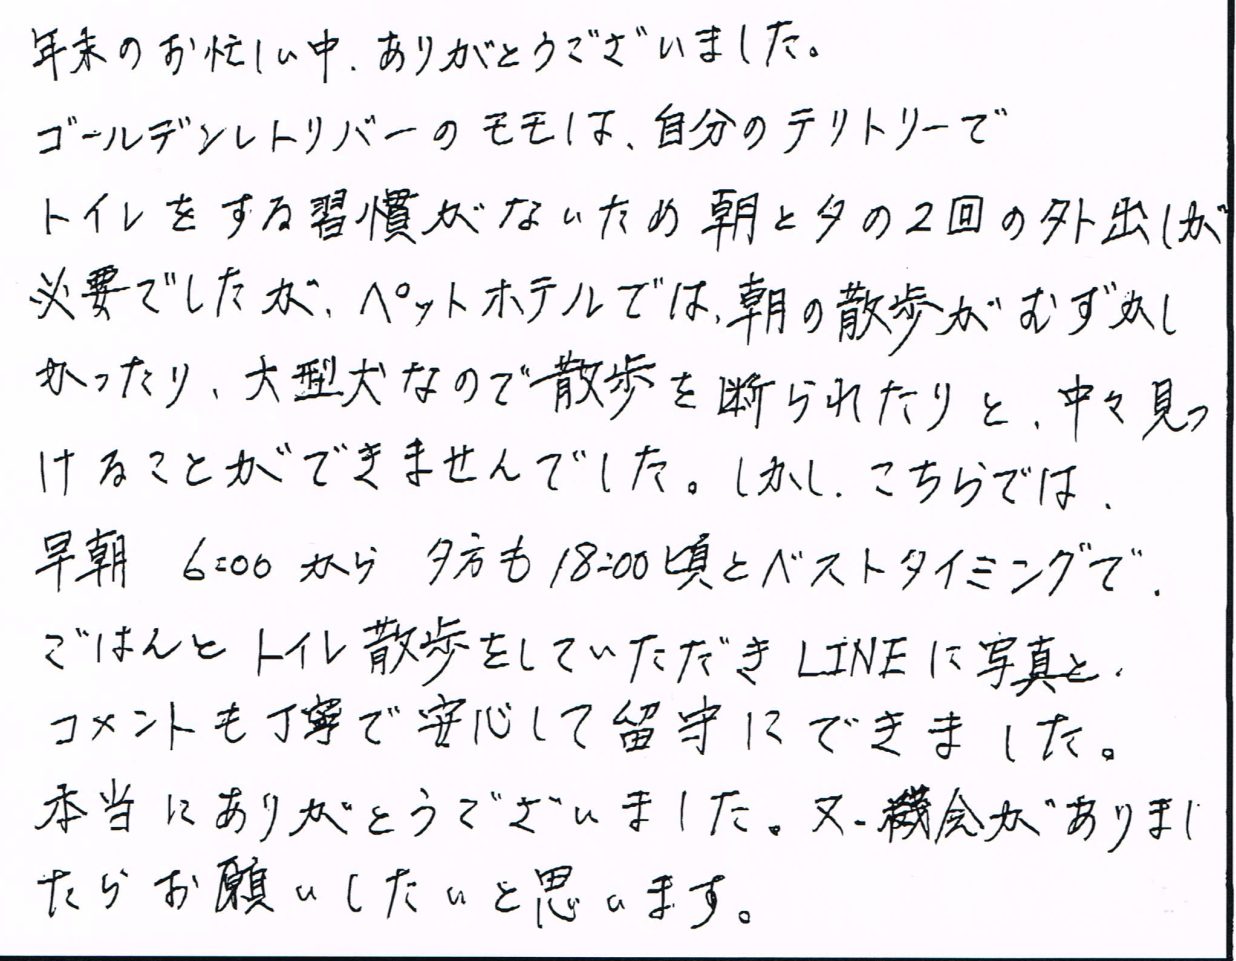 年末のお忙しい中、ありがとうございました。
ゴールデンレトリバーのモモは、自分のテリトリーで
トイレをする習慣がないため朝と夕の2回の外出しが
必要でしたが、ペットホテルでは、朝の散歩がむずかし
かったり、大型犬なので散歩を断られたりと、中々見つ
けることができませんでした。しかし、こちらでは、
早朝 6:00から 夕方も18:00頃とベストタイミングで、
ごはんとトイレ散歩をしていただきLINEに写真と、
コメントも丁寧で安心して留守にできました。
本当にありがとうございました。又、機会がありまし
たらお願いしたいと思います。